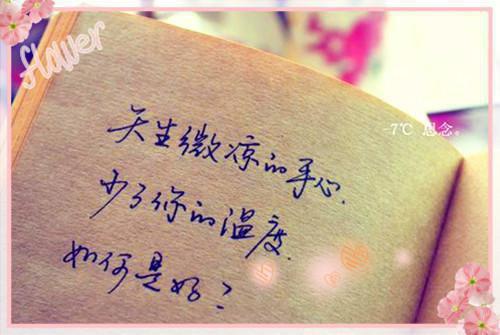 flower
-7℃ 思念。
天生微凉的手心.
少了你的温度.
如何是好？